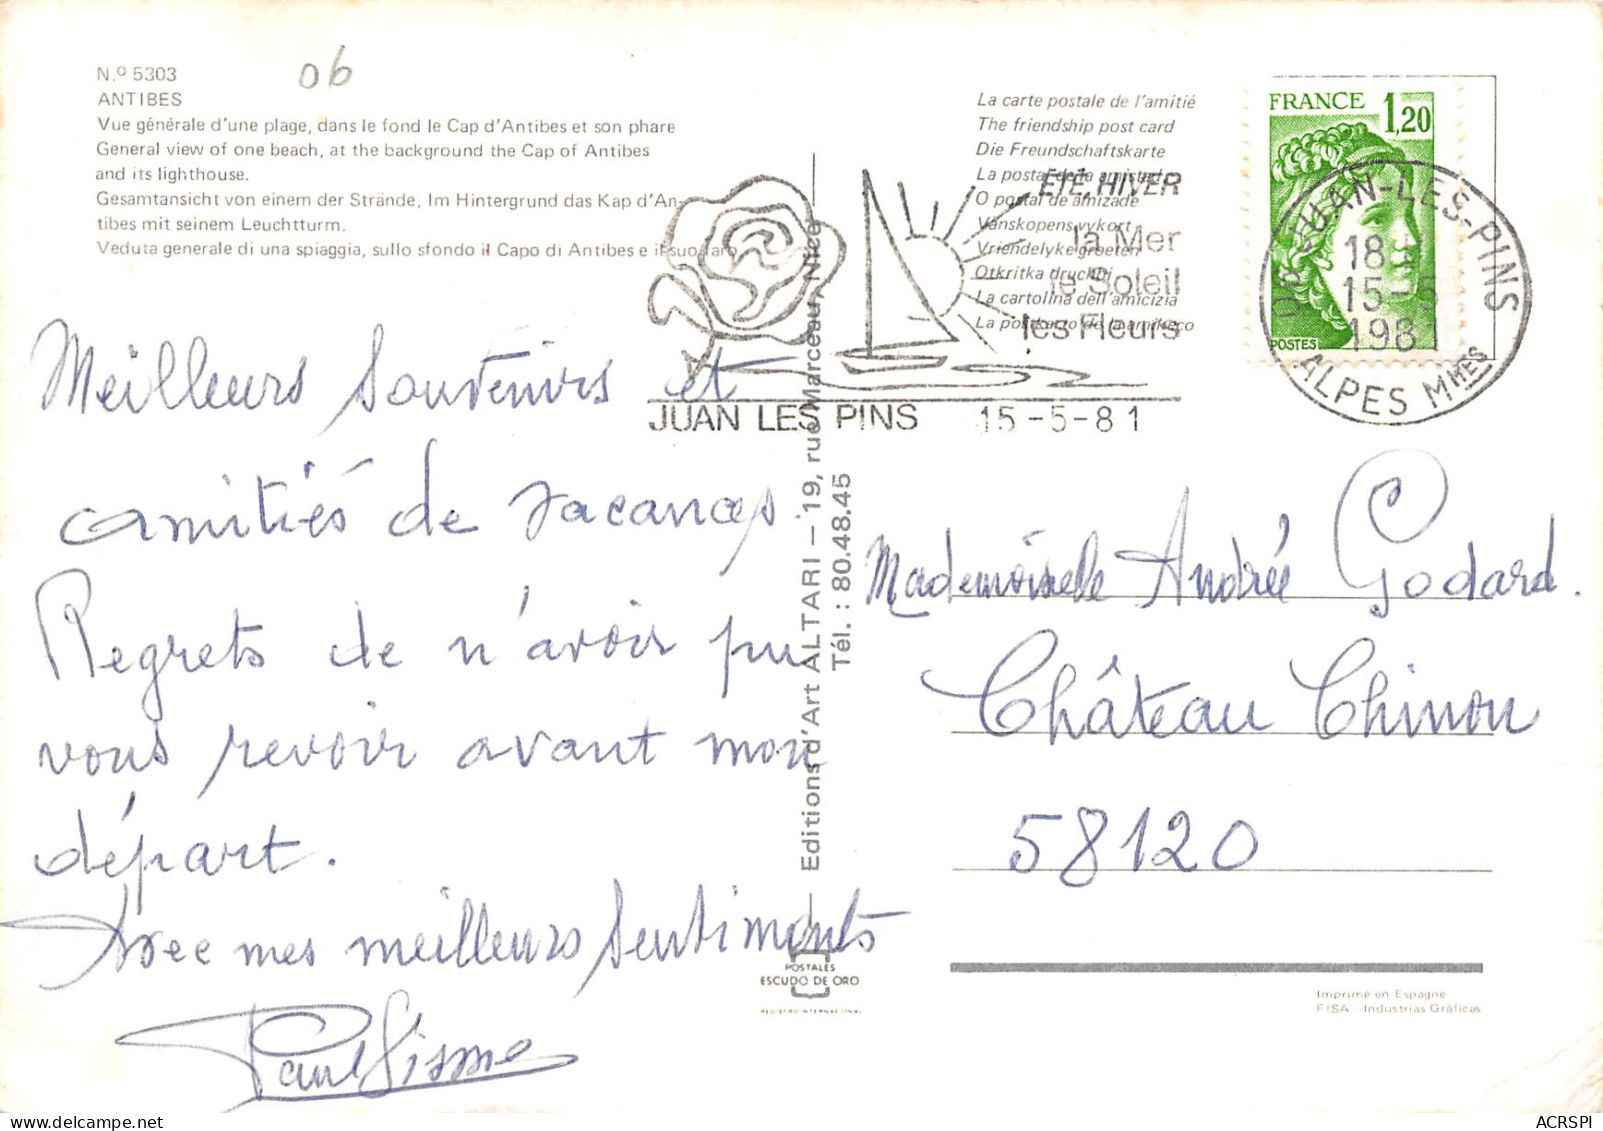 N.º 5303
06
ANTIBES
Vue générale d'une plage, dans le fond le Cap d'Antibes et son phare
General view of one beach, at the background the Cap of Antibes
and its lighthouse.
Gesamtansicht von einem der Strände, Im Hintergrund das Kap d'An-
tibes mit seinem Leuchtturm.
Veduta generale di una spiaggia, sullo sfondo il Capo di Antibes e il suo faro
Meilleurs souvenirs et
amitiés de vacances.
Regrets de n'avoir pu
vous revoir avant mon
départ.
Avec mes meilleurs sentiments
Paul
Editions d'Art ALTARI – 19, rue Marceau, Nice
Tél. : 80.48.45
POSTALES
ESCUDO DE ORO
REGISTRO INTERNACIONAL
La carte postale de l'amitié
The friendship post card
Die Freundschaftskarte
La postal de la amistad
O postal de amizade
Vänskopensvykort
Vriendelyke groeten
Otkritka druchbi
La cartolina dell'amicizia
ÉTÉ, HIVER
la Mer
le Soleil
les Fleurs
JUAN LES PINS 15-5-81
FRANCE
1,20
POSTES
JUAN-LES-PINS
18 H
15-5
1981
ALPES MMES
Mademoiselle Andrée Godard.
Château Chinon
58120
Imprimé en Espagne
FISA - Industrias Gráficas
ACRSPI